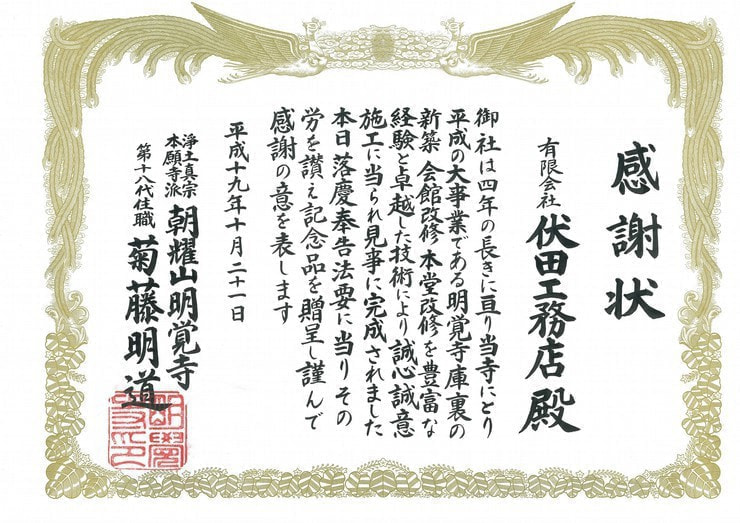 感謝状
有限会社 伏田工務店殿
御社は四年の長きに亘り当寺にとり
平成の大事業である明覚寺庫裏の
新築 会館改修 本堂改修を豊富な
経験と卓越した技術により誠心誠意
施工に当られ見事に完成されました
本日落慶奉告法要に当りその
労を讃え記念品を贈呈し謹んで
感謝の意を表します
平成十九年十月二十一日
浄土真宗
本願寺派 朝耀山明覚寺
第十八代住職 菊藤明道